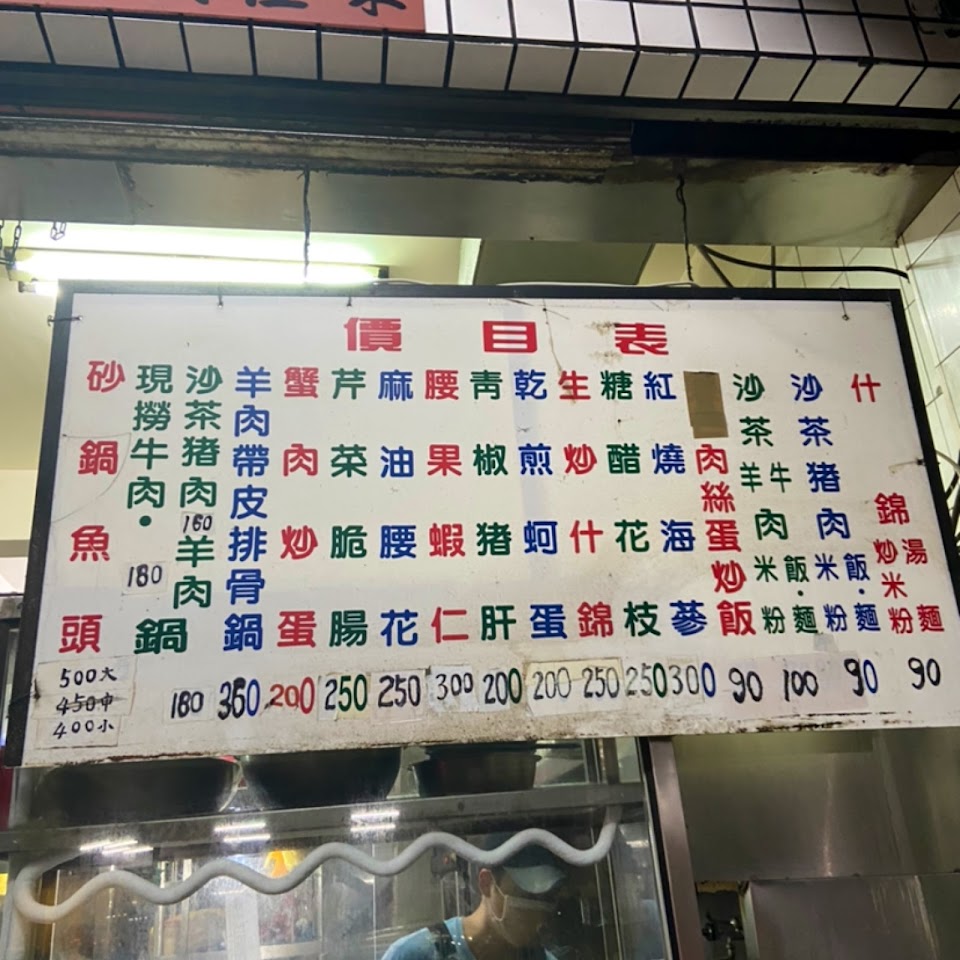 價目表
砂鍋魚頭
500大
450中
400小
現撈牛肉・
180
沙茶豬肉
160
羊肉
鍋
180
羊肉帶皮排骨鍋
360
蟹肉炒蛋
200
芹菜脆腸
250
麻油腰花
250
腰果蝦仁
300
青椒豬肝
200
乾煎蚵蛋
200
生炒什錦
250
糖醋花枝
250
紅燒海蔘
300
肉絲蛋炒飯
90
沙茶羊牛肉飯・麵米粉
100
沙茶豬肉飯・麵米粉
90
什錦炒湯麵米粉
90